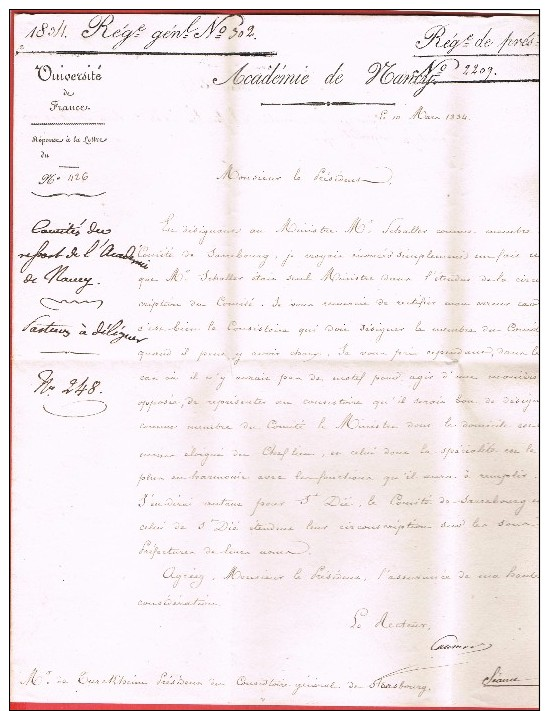 1834. Rég.e gén.l N.o 302.
Rég.e de prés.
N.o 2209.
Université
de
France
Académie de Nancy
Le 10 Mars 1834.
Réponse à la Lettre
du
N.o 1126
Monsieur le Président,
Comités du
ressort de l'Académie
de Nancy.
Pasteurs à déléguer
N.o 248.
En désignant au Ministre M.r Schaller comme membre
Comité de Sarrebourg, je voyais
que M.r Schaller était seul Ministre dans l'étendue de la circons
cription du Comité. Je vous remercie de rectifier mon erreur car
c'est bien le Consistoire qui doit désigner le membre du Comité
quand il peut y avoir choix. Je vous prie cependant, dans le
cas où il n'y aurait pas de motif pour agir d'une manière
opposée, de représenter au consistoire qu'il serait bon de désigner
comme membre du Comité le Ministre dont le domicile est
moins éloigné du Chef-lieu, et celui dont la spécialité est le
plus en harmonie avec les fonctions qu'il aura à remplir.
J'en dirai autant pour S.t Dié, le Comité de Sarrebourg et
celui de S.t Dié étendant leur circonscription sur les sous-
Préfectures de leurs noms.
Agréez, Monsieur le Président, l'assurance de ma haute
considération.
Le Recteur,
M.r de Turckheim Président du Consistoire général de Strasbourg.
Séance